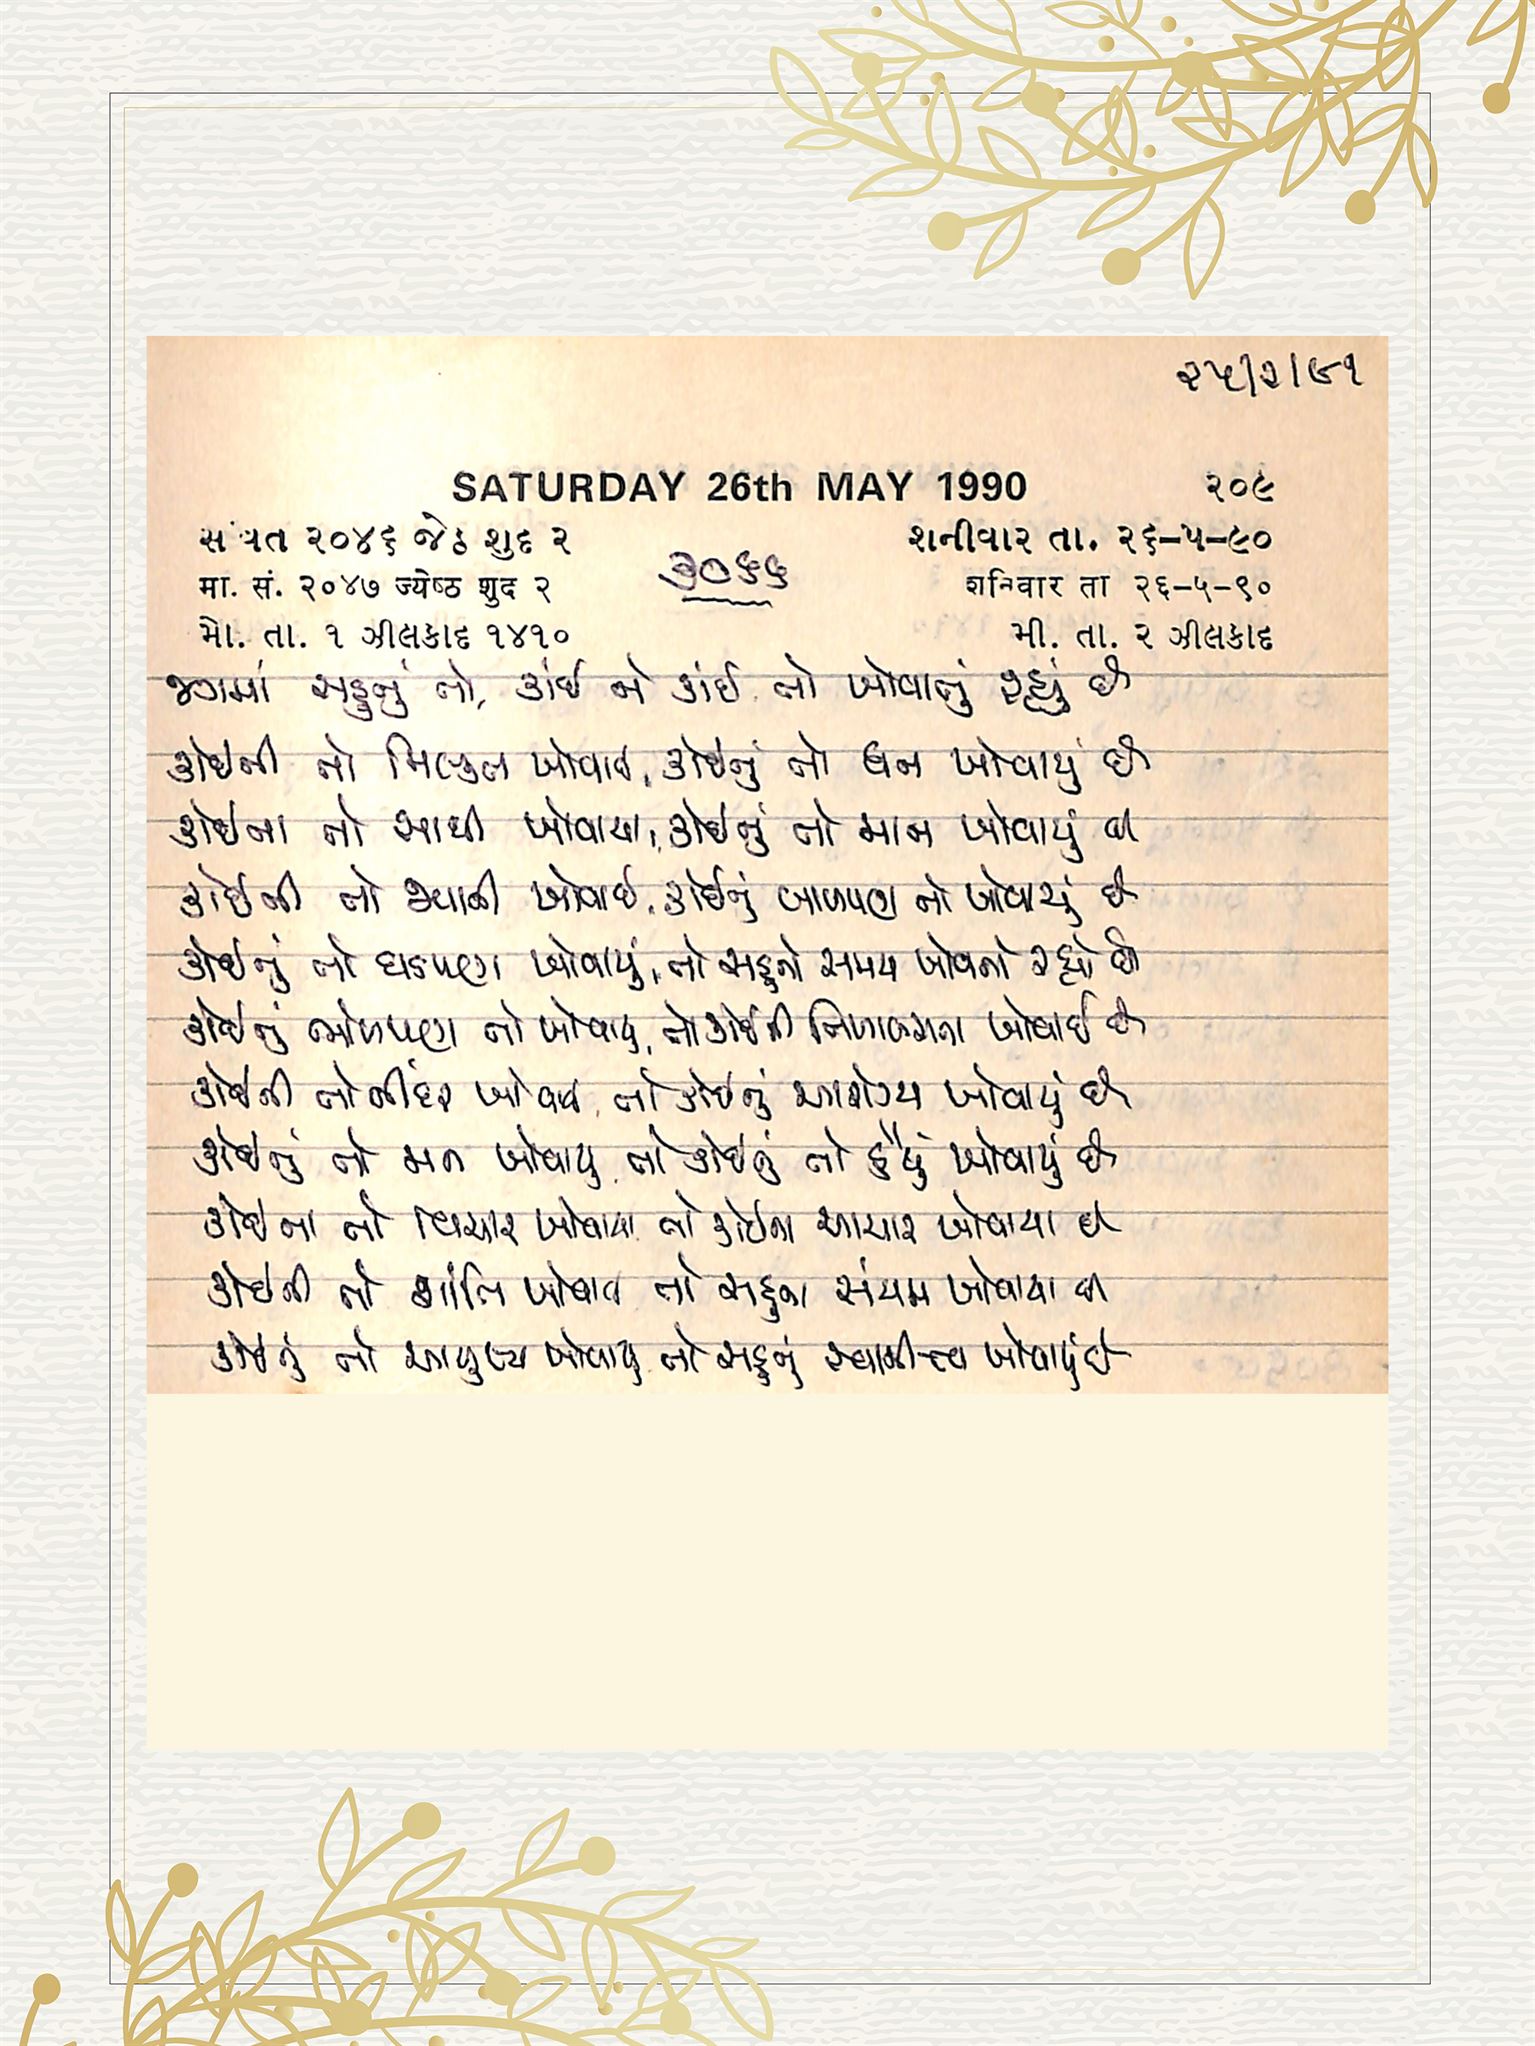 ૨૫/૨/૯૧
SATURDAY 26th MAY 1990 ૨૦૯
સંવત ૨૦૪૬ જેઠ શુદ ૨ શનીવાર તા. ૨૬-૫-૯૦
૩૦૬૬
मा. सं. २०४७ ज्येष्ठ शुद २ शनिवार ता २६-५-९०
મૌ. તા. ૧ ઝીલકાદ ૧૪૧૦ મી. તા. ૨ ઝીલકાદ
જગમાં સહુનું તો, કાંઈ ને કાંઈ તો ખોવાનું રહ્યું છે
કોઈની તો મિલ્કત ખોવાઈ, કોઈનું તો ધન ખોવાયું છે
કોઈના તો સાથી ખોવાયા, કોઈનું તો માન ખોવાયું છે
કોઈની તો જવાની ખોવાઈ, કોઈનું બાળપણ તો ખોવાયું છે
કોઈનું તો ઘડપણ ખોવાયું, તો સહુનો સમય ખોવાતો રહ્યો છે
કોઈનું ભોળપણ તો ખોવાયુ, તો કોઈની ખોવાઈ છે
કોઈની તો નીંદર ખોવાઈ, તો કોઈનું આરોગ્ય ખોવાયું છે
કોઈનું તો મન ખોવાયુ, તો કોઈનું તો હૈયું ખોવાયું છે
કોઈના તો વિચાર ખોવાયા તો કોઈના આચાર ખોવાયા છે
કોઈની તો શાંતિ ખોવાઈ તો સહુના સંયમ ખોવાયા છે
કોઈનું તો આયુષ્ય ખોવાયુ, તો સહુનું ખોવાયું છે